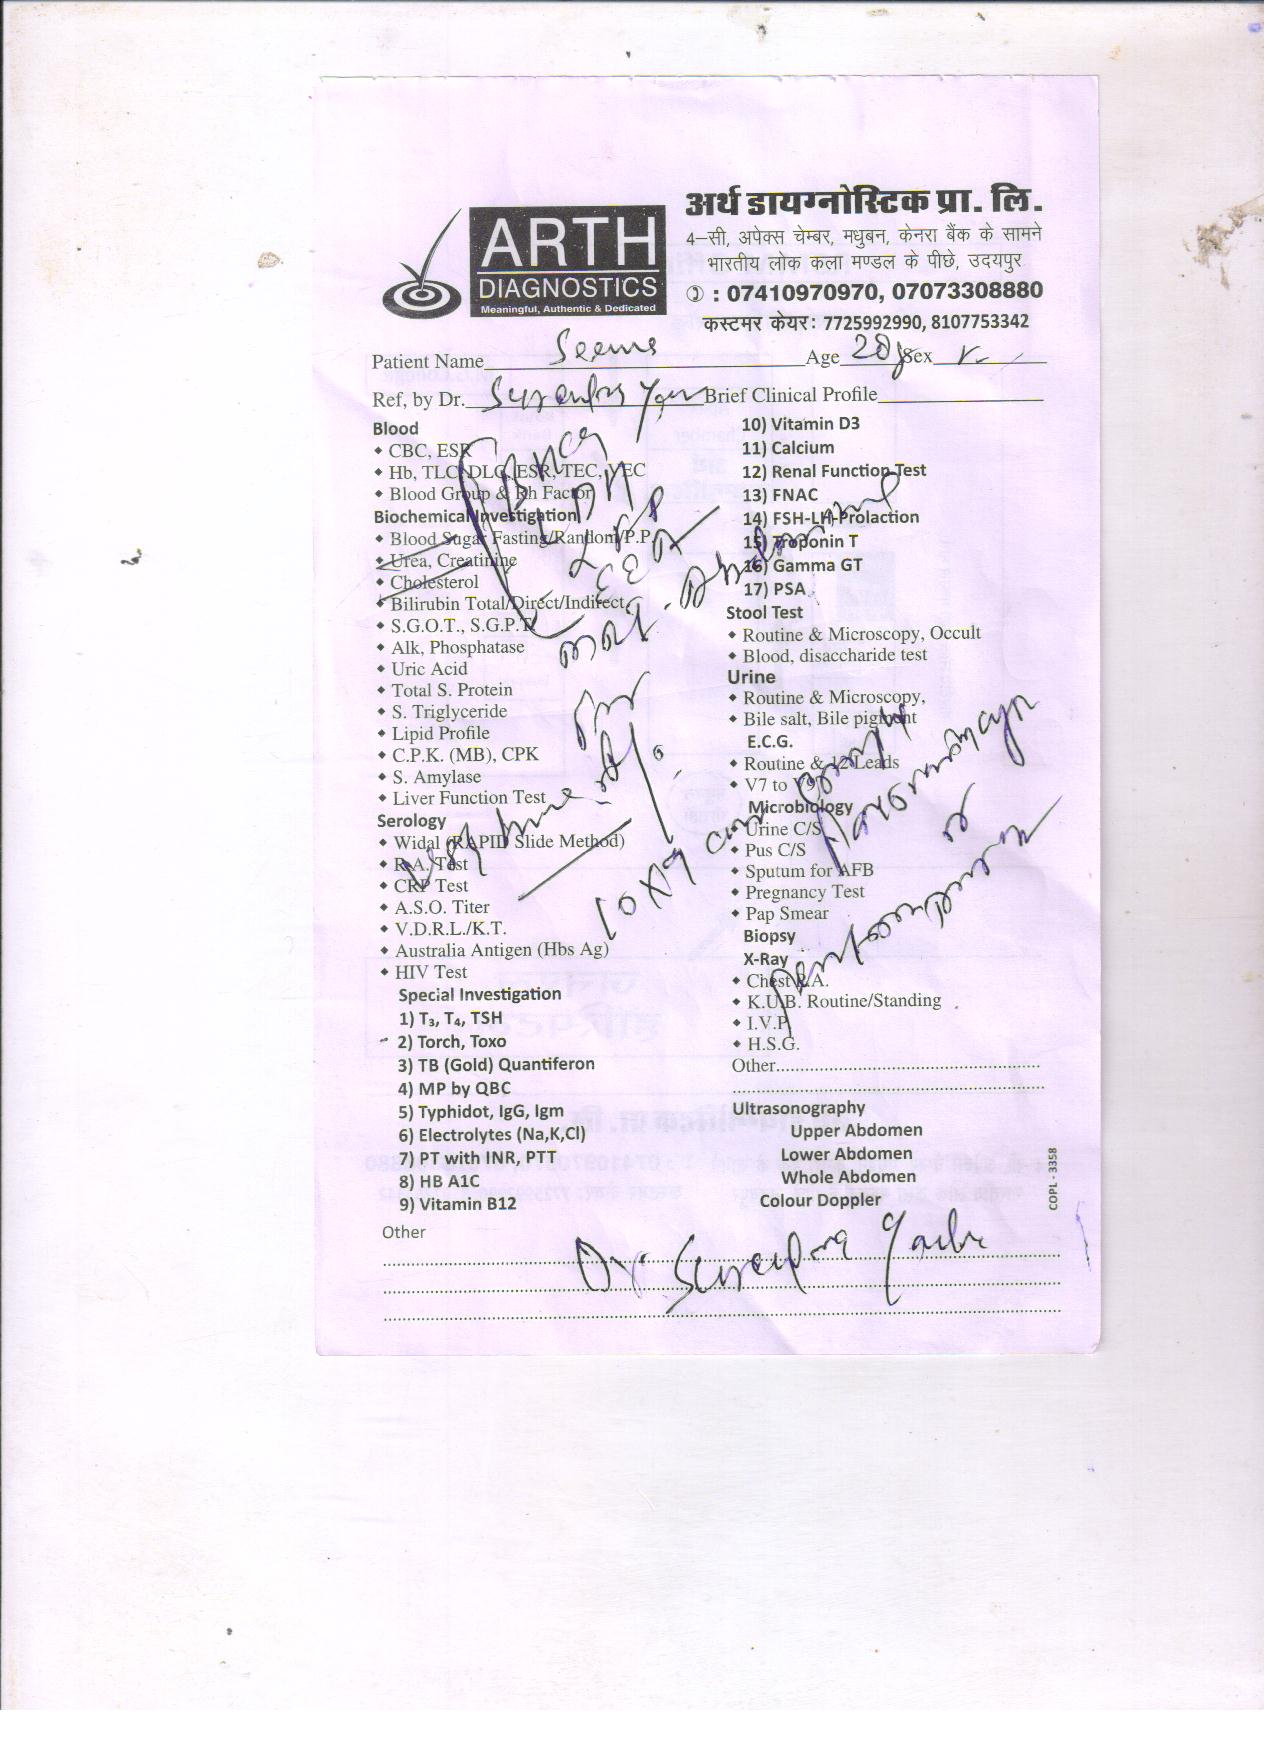 अर्थ डायग्नोस्टिक प्रा. लि.
ARTH
DIAGNOSTICS
Meaningful, Authentic & Dedicated
4-सी, अपेक्स चेम्बर, मधुबन, केनरा बैंक के सामने
भारतीय लोक कला मण्डल के पीछे, उदयपुर
: 07410970970, 07073308880
कस्टमर केयर: 7725992990, 8107753342
Patient Name Seema Age 20 Sex
Ref, by Dr. Brief Clinical Profile
Blood
CBC, ESR
Hb, TLC, DLC, ESR, TEC, VEC
Blood Group & Rh Factor
Biochemical Investigation
Blood Sugar Fasting/Random/P.P.
Urea, Creatinine
Cholesterol
Bilirubin Total/Direct/Indirect
S.G.O.T., S.G.P.T.
Alk, Phosphatase
Uric Acid
Total S. Protein
S. Triglyceride
Lipid Profile
C.P.K. (MB), CPK
S. Amylase
Liver Function Test
Serology
Widal (RAPID Slide Method)
R.A. Test
CRP Test
A.S.O. Titer
V.D.R.L./K.T.
Australia Antigen (Hbs Ag)
HIV Test
Special Investigation
1) T₃, T₄, TSH
2) Torch, Toxo
3) TB (Gold) Quantiferon
4) MP by QBC
5) Typhidot, IgG, Igm
6) Electrolytes (Na,K,Cl)
7) PT with INR, PTT
8) HB A1C
9) Vitamin B12
10) Vitamin D3
11) Calcium
12) Renal Function Test
13) FNAC
14) FSH-LH-Prolaction
15) Troponin T
16) Gamma GT
17) PSA
Stool Test
Routine & Microscopy, Occult
Blood, disaccharide test
Urine
Routine & Microscopy,
Bile salt, Bile pigment
E.C.G.
Routine & 12 Leads
V7 to V9
Microbiology
Urine C/S
Pus C/S
Sputum for AFB
Pregnancy Test
Pap Smear
Biopsy
X-Ray
Chest P.A.
K.U.B. Routine/Standing
I.V.P.
H.S.G.
Other
Ultrasonography
Upper Abdomen
Lower Abdomen
Whole Abdomen
Colour Doppler
COPL - 3358
Other
Dr.